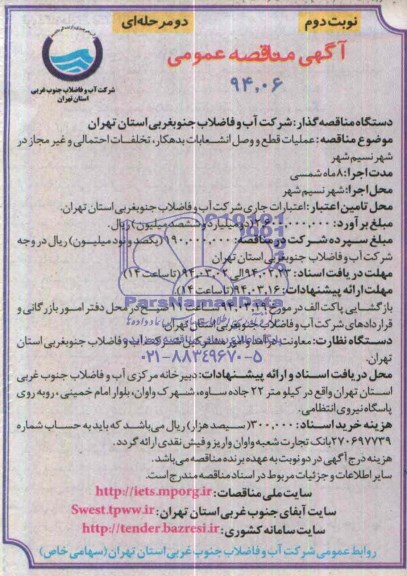 نوبت دوم
دو مرحله‌ای
آگهی مناقصه عمومی
۹۴.۰۶
شرکت آب و فاضلاب جنوب غربی
استان تهران
دستگاه مناقصه گذار: شرکت آب و فاضلاب جنوبغربی استان تهران
موضوع مناقصه: عملیات قطع و وصل انشعابات بدهکار، تخلفات احتمالی و غیر مجاز در
شهر نسیم شهر
مدت اجرا: ۸ ماه شمسی
محل اجرا: شهر نسیم شهر
محل تامین اعتبار: اعتبارات جاری شرکت آب و فاضلاب جنوبغربی استان تهران.
مبلغ برآورد: ریال.
مبلغ سپرده شرکت در مناقصه: ۱۹۰،۰۰۰،۰۰۰ (یکصد و نود میلیون) ریال در وجه
شرکت آب و فاضلاب جنوبغربی استان تهران
مهلت دریافت اسناد: (تا ساعت ۱۴)
مهلت ارائه پیشنهادات: ۹۴،۰۳،۱۶ (تا ساعت ۱۴)
بازگشایی پاکت الف در مورخ صبح در محل دفتر امور بازرگانی و
قراردادهای شرکت آب و فاضلاب جنوبغربی استان تهران
دستگاه نظارت: معاونت درآمد و امور مشترکین شرکت آب و فاضلاب جنوبغربی استان
تهران.
ParsNamadData
۰۲۱-۸۸۳۴۹۶۷۰-۵
محل دریافت اسناد و ارائه پیشنهادات: دبیرخانه مرکزی آب و فاضلاب جنوب غربی
استان تهران واقع در کیلومتر ۲۲ جاده ساوه، شهرک واوان، بلوار امام خمینی، روبه روی
پاسگاه نیروی انتظامی.
هزینه خرید اسناد: ۳۰۰،۰۰۰ (سیصد هزار) ریال می‌باشد که باید به حساب شماره
۲۷۰۶۹۷۷۳۹ بانک تجارت شعبه واوان واریز و فیش نقدی ارائه گردد.
هزینه درج آگهی در دو نوبت به عهده برنده مناقصه می‌باشد.
سایر اطلاعات و جزئیات مربوط در اسناد مناقصه مندرج است.
سایت ملی مناقصات: http://iets.mporg.ir
سایت آبفای جنوب غربی استان تهران: Swest.tpww.ir
سایت سامانه کشوری: http://tender.bazresi.ir
روابط عمومی شرکت آب و فاضلاب جنوب غربی استان تهران (سهامی خاص)